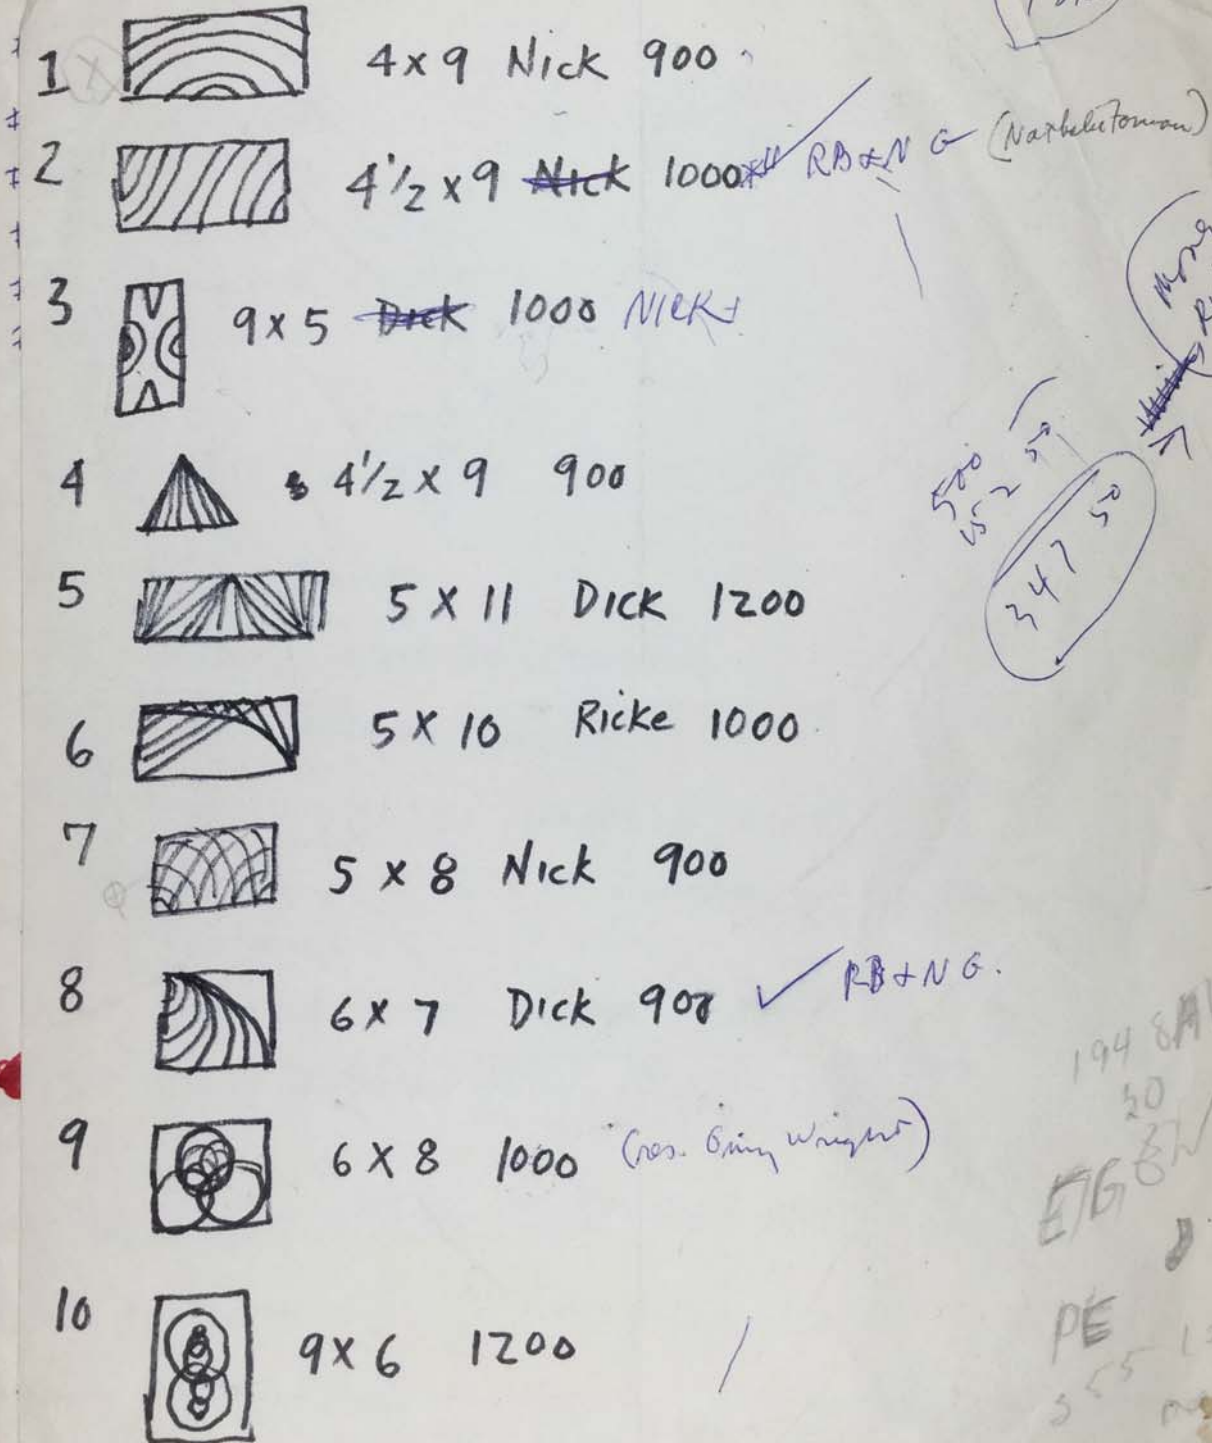 1 4 x 9 Nick 900
2 4 1/2 x 9 Nick 1000 RB & N G
3 9 x 5 Dick 1000 NICK
4 4 1/2 x 9 900
5 5 X 11 DICK 1200
6 5 X 10 Ricke 1000
7 5 x 8 Nick 900
8 6 x 7 DICK 900 ✓ RB + N G.
9 6 X 8 1000 (res. Wright)
10 9 X 6 1200
500
152 50
347 50
194 8
30
PE